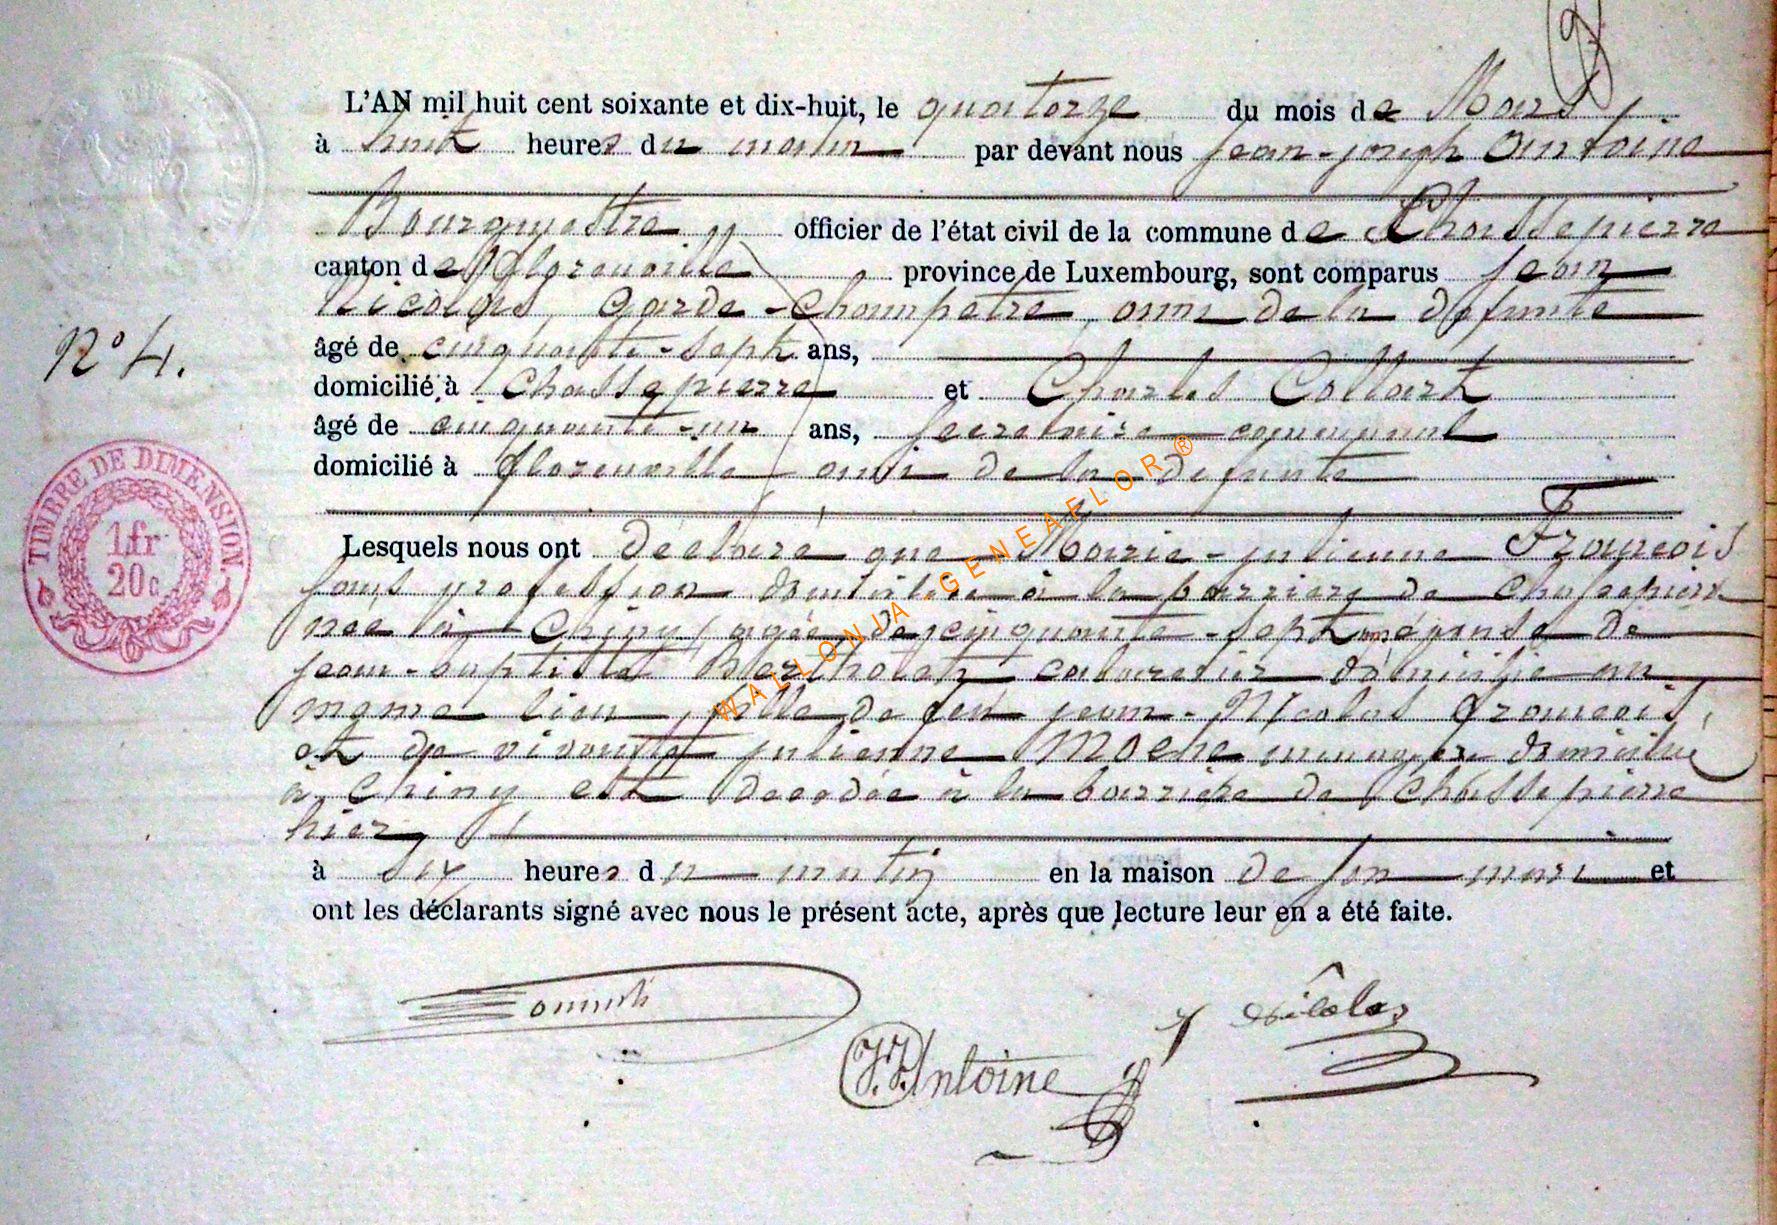 L'AN mil huit cent soixante et dix-huit, le quatorze du mois de Mars
à huit heures du matin par devant nous Jean-joseph Antoine
Bourgmestre officier de l'état civil de la commune de Chassepierre
canton de Florenville province de Luxembourg, sont comparus Jean
Nicolas, Garde-Champetre, ami de la defunte
âgé de cinquante-sept ans,
domicilié à Chassepierre et Charles Collart
âgé de cinquante-un ans, secretaire communal
domicilié à florenville ami de la defunte
Lesquels nous ont déclaré que Marie-julienne François
sans profession domiciliée à la barriere de Chassepierre
née à Chiny, agée de cinquante-sept épouse de
jean-baptiste Bertholet cabaretier domicilié au
meme lieu, fille de feu jean-Nicolas François,
et de vivante julienne Moens menagere domiciliée
à Chiny est decedée à la barriere de Chassepierre
hier
à six heures du matin en la maison de son mari et
ont les déclarants signé avec nous le présent acte, après que lecture leur en a été faite.
N° 4.
TIMBRE DE DIMENSION
1 fr
20 c
J. J. Antoine
J Nicolas
WALLONIA - GENEAFLOR ®